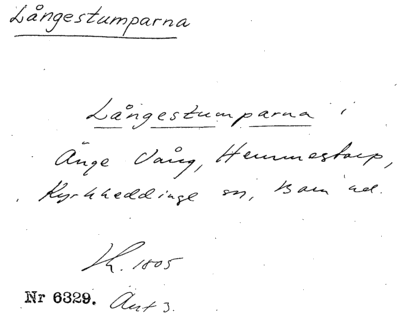 Långestumparna
Långestumparna i
Änge Vång, Hemmestorp,
Kyrkheddinge sn, Bara hd.
Sk. 1805
Nr 6329. Akt 3.